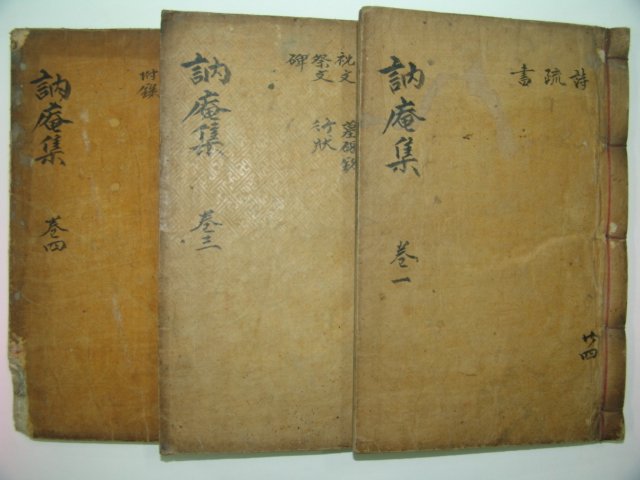 訥庵集
卷一
詩
疏
書
共四
訥庵集
卷三
祝文
祭文
碑
行狀
訥庵集
卷四
附錄